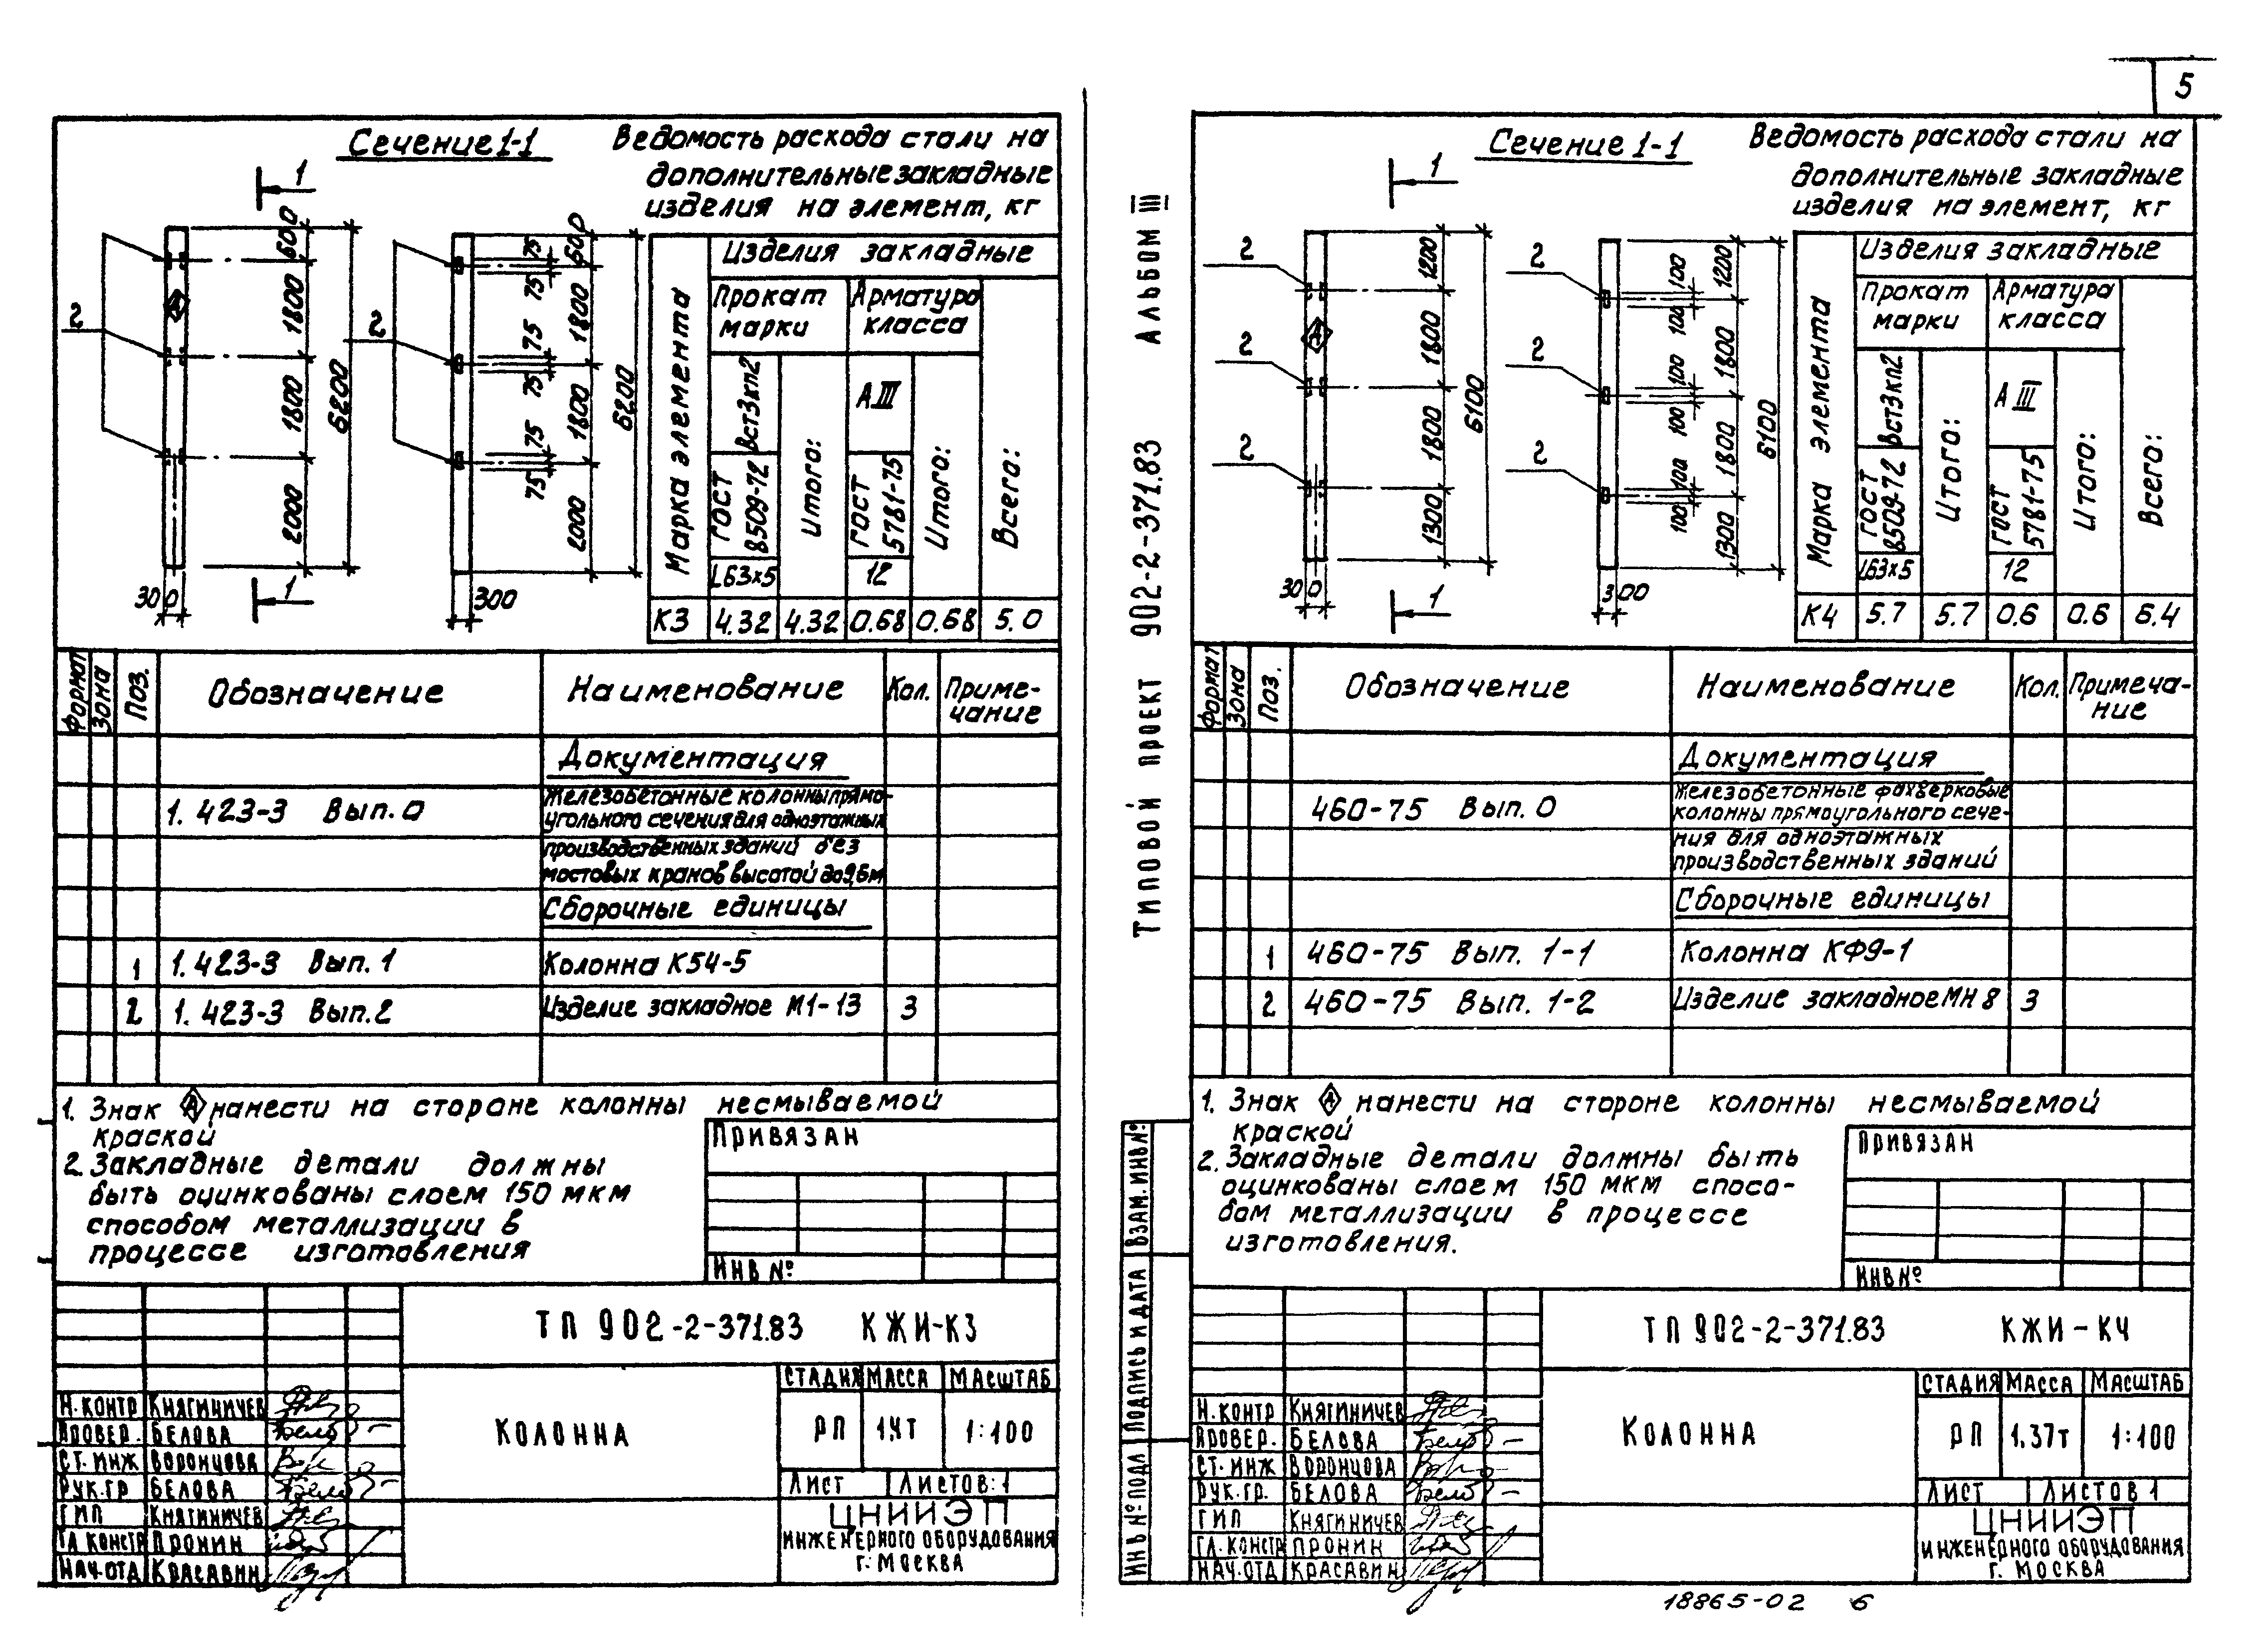 5
Сечение 1-1
Ведомость расхода стали на
дополнительные закладные
изделия на элемент, кг
1
2
600
1800
1800
2000
6200
300
1
2
75
75
75
75
75
75
600
1800
1800
2000
6200
300
Марка элемента
Изделия закладные
Прокат марки
Арматура класса
Вст3кп2
А III
ГОСТ 8509-72
Итого:
ГОСТ 5781-75
Итого:
Всего:
L63х5
12
К3 4.32 4.32 0.68 0.68 5.0
Формат Зона Поз. Обозначение Наименование Кол. Приме-
чание
Документация
1.423-3 Вып.0 Железобетонные колонны прямо-
угольного сечения для одноэтажных
производственных зданий без
мостовых кранов высотой до 9,6м
Сборочные единицы
1 1.423-3 Вып.1 Колонна К54-5
2 1.423-3 Вып.2 Изделие закладное М1-13 3
1. Знак А нанести на стороне колонны несмываемой
краской
2. Закладные детали должны
быть оцинкованы слоем 150 мкм
способом металлизации в
процессе изготовления
Привязан
Инв №
ТП 902-2-371.83 КЖИ-К3
Колонна
Стадия Масса Масштаб
РП 1.4т 1:100
Лист Листов:1
ЦНИИЭП
инженерного оборудования
г. Москва
Н.контр Княгиничев
Провер. Белова
Ст.инж Воронцова
Рук.гр Белова
ГИП Княгиничев
Гл констр Пронин
Нач.отд Красавин
Типовой проект 902-2-371.83 Альбом III
Сечение 1-1
Ведомость расхода стали на
дополнительные закладные
изделия на элемент, кг
1
2
2
2
1200
1800
1800
1300
6100
300
1
2
2
2
100
100
100
100
100
100
1200
1800
1800
1300
6100
300
Марка элемента
Изделия закладные
Прокат марки
Арматура класса
Вст3кп2
А III
ГОСТ 8509-72
Итого:
ГОСТ 5781-75
Итого:
Всего:
L63х5
12
К4 5.7 5.7 0.6 0.6 6.4
Формат Зона Поз. Обозначение Наименование Кол. Примеча-
ние
Документация
460-75 Вып.0 Железобетонные фахверковые
колонны прямоугольного сече-
ния для одноэтажных
производственных зданий
Сборочные единицы
1 460-75 Вып. 1-1 Колонна КФ9-1
2 460-75 Вып. 1-2 Изделие закладное МН 8 3
1. Знак А нанести на стороне колонны несмываемой
краской
2. Закладные детали должны быть
оцинкованы слоем 150 мкм спосо-
бом металлизации в процессе
изготовления.
Привязан
Инв №
Взам. инв №
Подпись и дата
Инв № подл
ТП 902-2-371.83 КЖИ-К4
Колонна
Стадия Масса Масштаб
РП 1.37т 1:100
Лист Листов 1
ЦНИИЭП
инженерного оборудования
г. Москва
Н.контр Княгиничев
Провер. Белова
Ст.инж Воронцова
Рук.гр. Белова
ГИП Княгиничев
Гл.констр Пронин
Нач.отд Красавин
18865-02 6